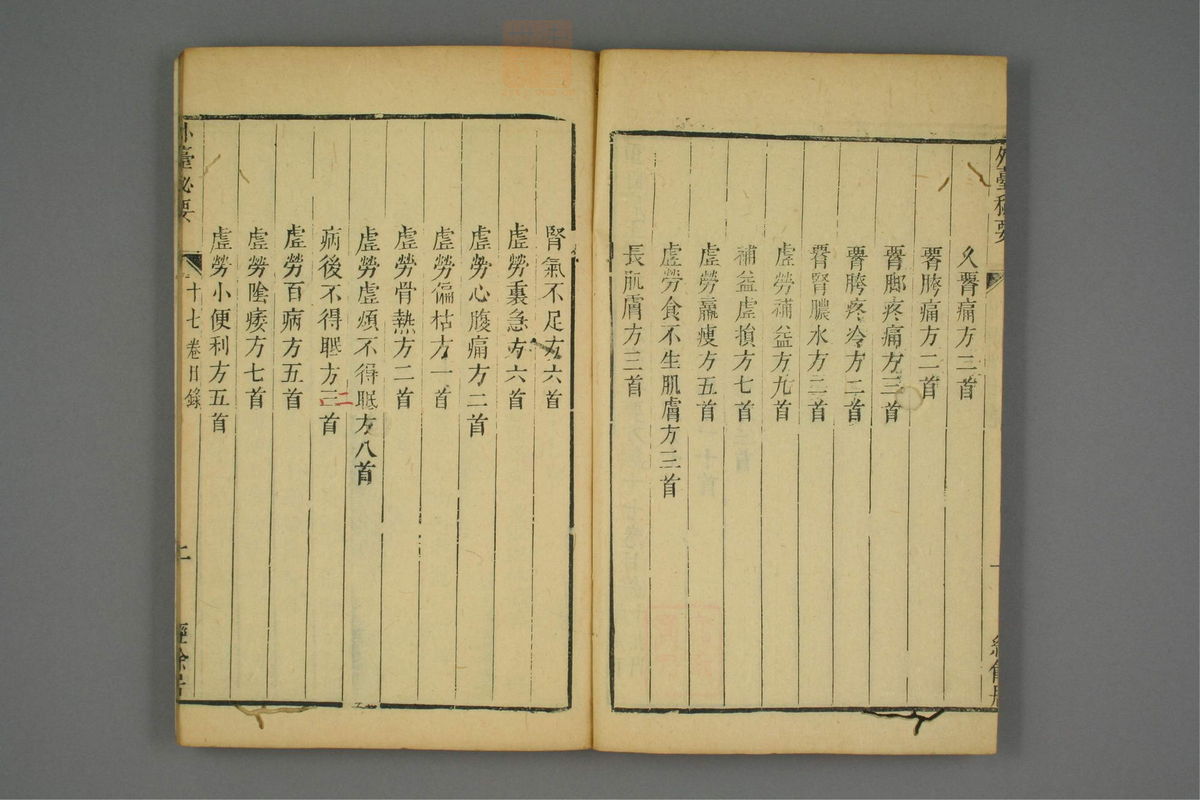 外臺秘要
久腰痛方三首
腰胯痛方二首
腰脚疼痛方三首
腰胯疼冷方二首
腰腎膿水方二首
虛勞補益方九首
補益虛損方七首
虛勞羸瘦方五首
虛勞食不生肌膚方三首
長肌膚方三首
腎氣不足方六首
虛勞裏急方六首
虛勞心腹痛方二首
虛勞偏枯方一首
虛勞骨熱方二首
虛勞虛煩不得眠方八首
病後不得眠方三首
二
虛勞百病方五首
虛勞陰痿方七首
虛勞小便利方五首
外臺秘要
十七卷目錄
二
經餘居